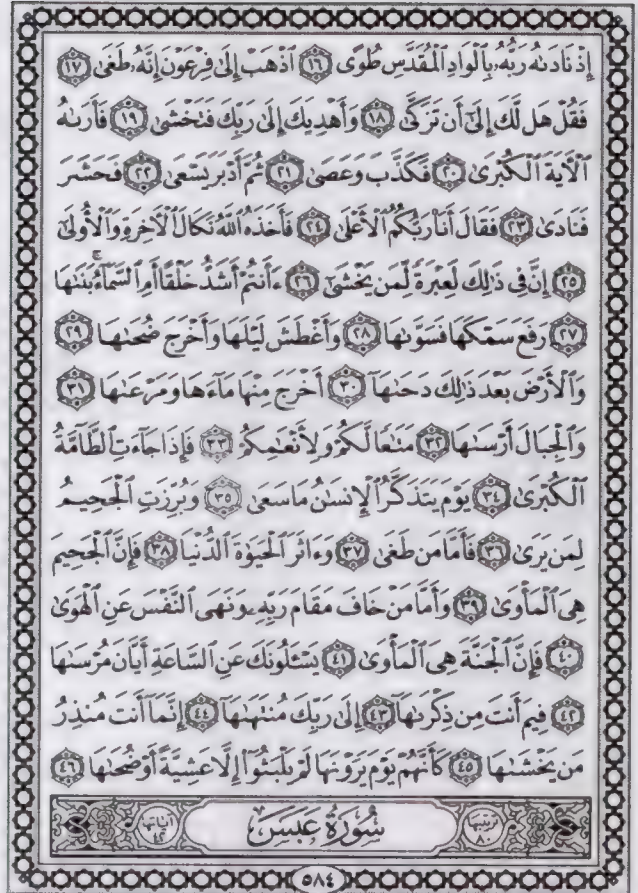 إِذْ نَادَىٰهُ رَبُّهُۥ بِٱلْوَادِ ٱلْمُقَدَّسِ طُوًى ١٦ ٱذْهَبْ إِلَىٰ فِرْعَوْنَ إِنَّهُۥ طَغَىٰ ١٧
فَقُلْ هَل لَّكَ إِلَىٰٓ أَن تَزَكَّىٰ ١٨ وَأَهْدِيَكَ إِلَىٰ رَبِّكَ فَتَخْشَىٰ ١٩ فَأَرَىٰهُ
ٱلْءَايَةَ ٱلْكُبْرَىٰ ٢٠ فَكَذَّبَ وَعَصَىٰ ٢١ ثُمَّ أَدْبَرَ يَسْعَىٰ ٢٢ فَحَشَرَ
فَنَادَىٰ ٢٣ فَقَالَ أَنَا۠ رَبُّكُمُ ٱلْأَعْلَىٰ ٢٤ فَأَخَذَهُ ٱللَّهُ نَكَالَ ٱلْءَاخِرَةِ وَٱلْأُولَىٰٓ
٢٥ إِنَّ فِى ذَٰلِكَ لَعِبْرَةً لِّمَن يَخْشَىٰٓ ٢٦ ءَأَنتُمْ أَشَدُّ خَلْقًا أَمِ ٱلسَّمَآءُ ۚ بَنَىٰهَا
٢٧ رَفَعَ سَمْكَهَا فَسَوَّىٰهَا ٢٨ وَأَغْطَشَ لَيْلَهَا وَأَخْرَجَ ضُحَىٰهَا ٢٩
وَٱلْأَرْضَ بَعْدَ ذَٰلِكَ دَحَىٰهَآ ٣٠ أَخْرَجَ مِنْهَا مَآءَهَا وَمَرْعَىٰهَا ٣١
وَٱلْجِبَالَ أَرْسَىٰهَا ٣٢ مَتَٰعًا لَّكُمْ وَلِأَنْعَٰمِكُمْ ٣٣ فَإِذَا جَآءَتِ ٱلطَّآمَّةُ
ٱلْكُبْرَىٰ ٣٤ يَوْمَ يَتَذَكَّرُ ٱلْإِنسَٰنُ مَا سَعَىٰ ٣٥ وَبُرِّزَتِ ٱلْجَحِيمُ
لِمَن يَرَىٰ ٣٦ فَأَمَّا مَن طَغَىٰ ٣٧ وَءَاثَرَ ٱلْحَيَوٰةَ ٱلدُّنْيَا ٣٨ فَإِنَّ ٱلْجَحِيمَ
هِىَ ٱلْمَأْوَىٰ ٣٩ وَأَمَّا مَنْ خَافَ مَقَامَ رَبِّهِۦ وَنَهَى ٱلنَّفْسَ عَنِ ٱلْهَوَىٰ
٤٠ فَإِنَّ ٱلْجَنَّةَ هِىَ ٱلْمَأْوَىٰ ٤١ يَسْـَٔلُونَكَ عَنِ ٱلسَّاعَةِ أَيَّانَ مُرْسَىٰهَا
٤٢ فِيمَ أَنتَ مِن ذِكْرَىٰهَآ ٤٣ إِلَىٰ رَبِّكَ مُنتَهَىٰهَآ ٤٤ إِنَّمَآ أَنتَ مُنذِرُ
مَن يَخْشَىٰهَا ٤٥ كَأَنَّهُمْ يَوْمَ يَرَوْنَهَا لَمْ يَلْبَثُوٓا۟ إِلَّا عَشِيَّةً أَوْ ضُحَىٰهَا ٤٦
ترتيبها ٨٠ سُورَةُ عَبَسَ آياتها ٤٢
٥٨٤